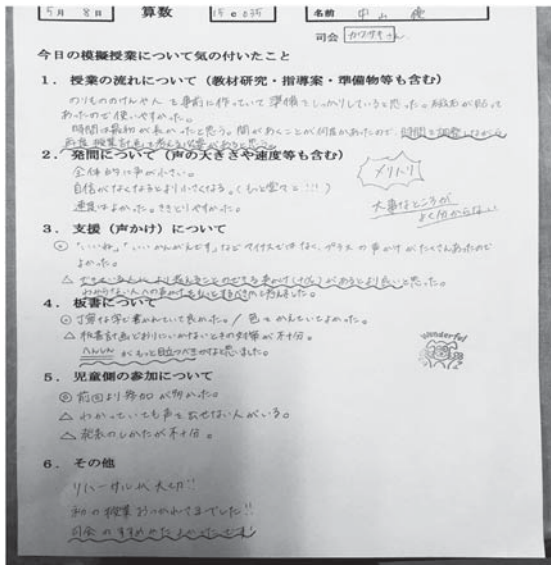 5月 8日 算数 名前 中山
司会
今日の模擬授業について気の付いたこと
1. 授業の流れについて（教材研究・指導案・準備物等も含む）
のりもののけんや人を事前に作っていて準備をしっかりしていると思った。 が貼って
あったので使いやすかった。
時間は最初が長かったと思う。間があくことが何度かあったので、時間を調整しながら
授業計画を考える必要があると思う。
2. 発問について（声の大きさや速度等も含む）
全体的に声が小さい。
自信がなくなるとより小さくなる。（もっと堂々と!!!）
速度はよかった。ききとりやすかった。
メリハリ
大事なところが
よく分からない
3. 支援（声かけ）について
◎ "いいね"、"いいかんがえです"などマイナスではなく、プラスの声かけがたくさんあったので
よかった。
△ より考えることのできる声かけ があるとより良いと思った。
わからない人への声かけも
4. 板書について
◎ 丁寧な字で書かれていて良かった。/ 色もかんたんでよかった。
△ 板書計画どおりにいかないときの対策が不十分。
がもっと目立つべきかなと思いました。
wonderful
5. 児童側の参加について
◎ 前回より参加が多かった。
△ わかっていても声を出せない人がいる。
△ 発表のしかたが不十分。
6. その他
リハーサルが大切!!
初の授業おつかれさまでした!!
司会のすすめかたよかったです!